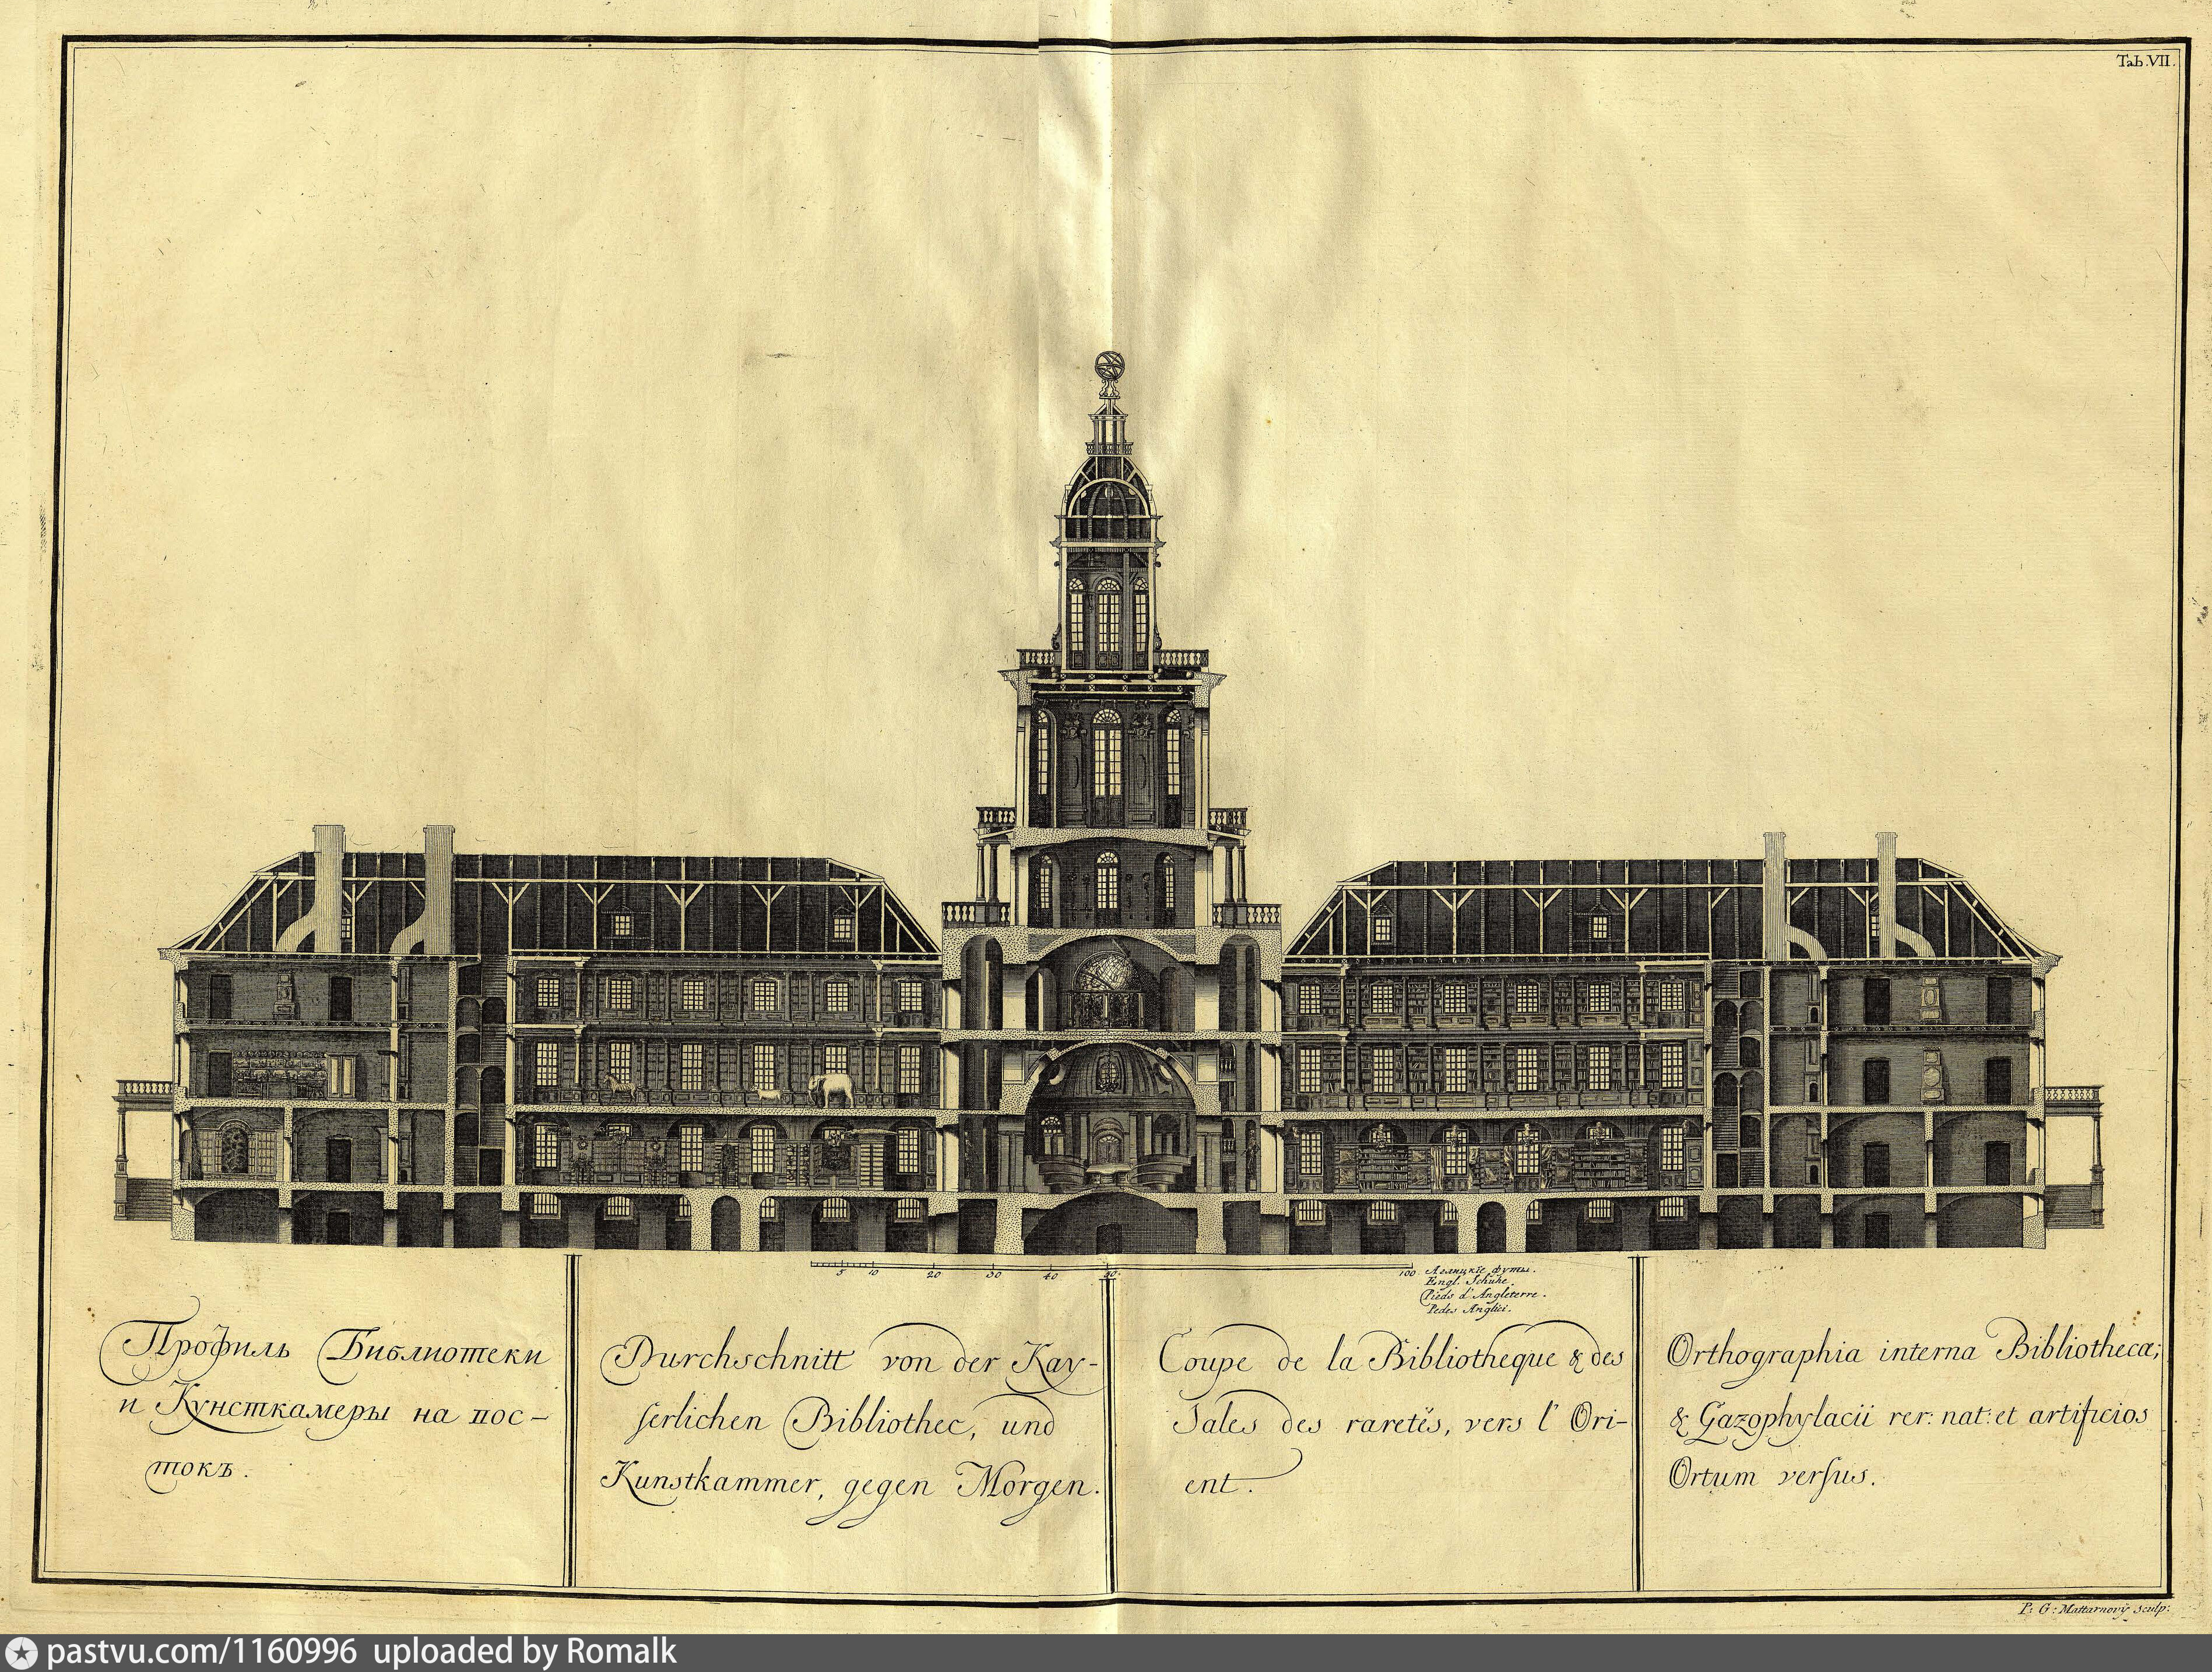 Tab.VII.
5 10 20 30 40 50. 100. Аглицкїе футы.
Engl. Schühe.
Pieds d'Angleterre.
Pedes Anglici.
Профиль Библиотеки
и Кунсткамеры на вос-
токъ.
Durchschnitt von der Kay-
serlichen Bibliothec, und
Kunstkammer, gegen Morgen.
Coupe de la Bibliotheque & des
Sales des raretés, vers l'Ori-
ent.
Orthographia interna Bibliothecæ;
& Gazophylacii rer: nat: et artificios
Ortum versus.
P: G: Mattarnovÿ sculp:
pastvu.com/1160996 uploaded by Romalk